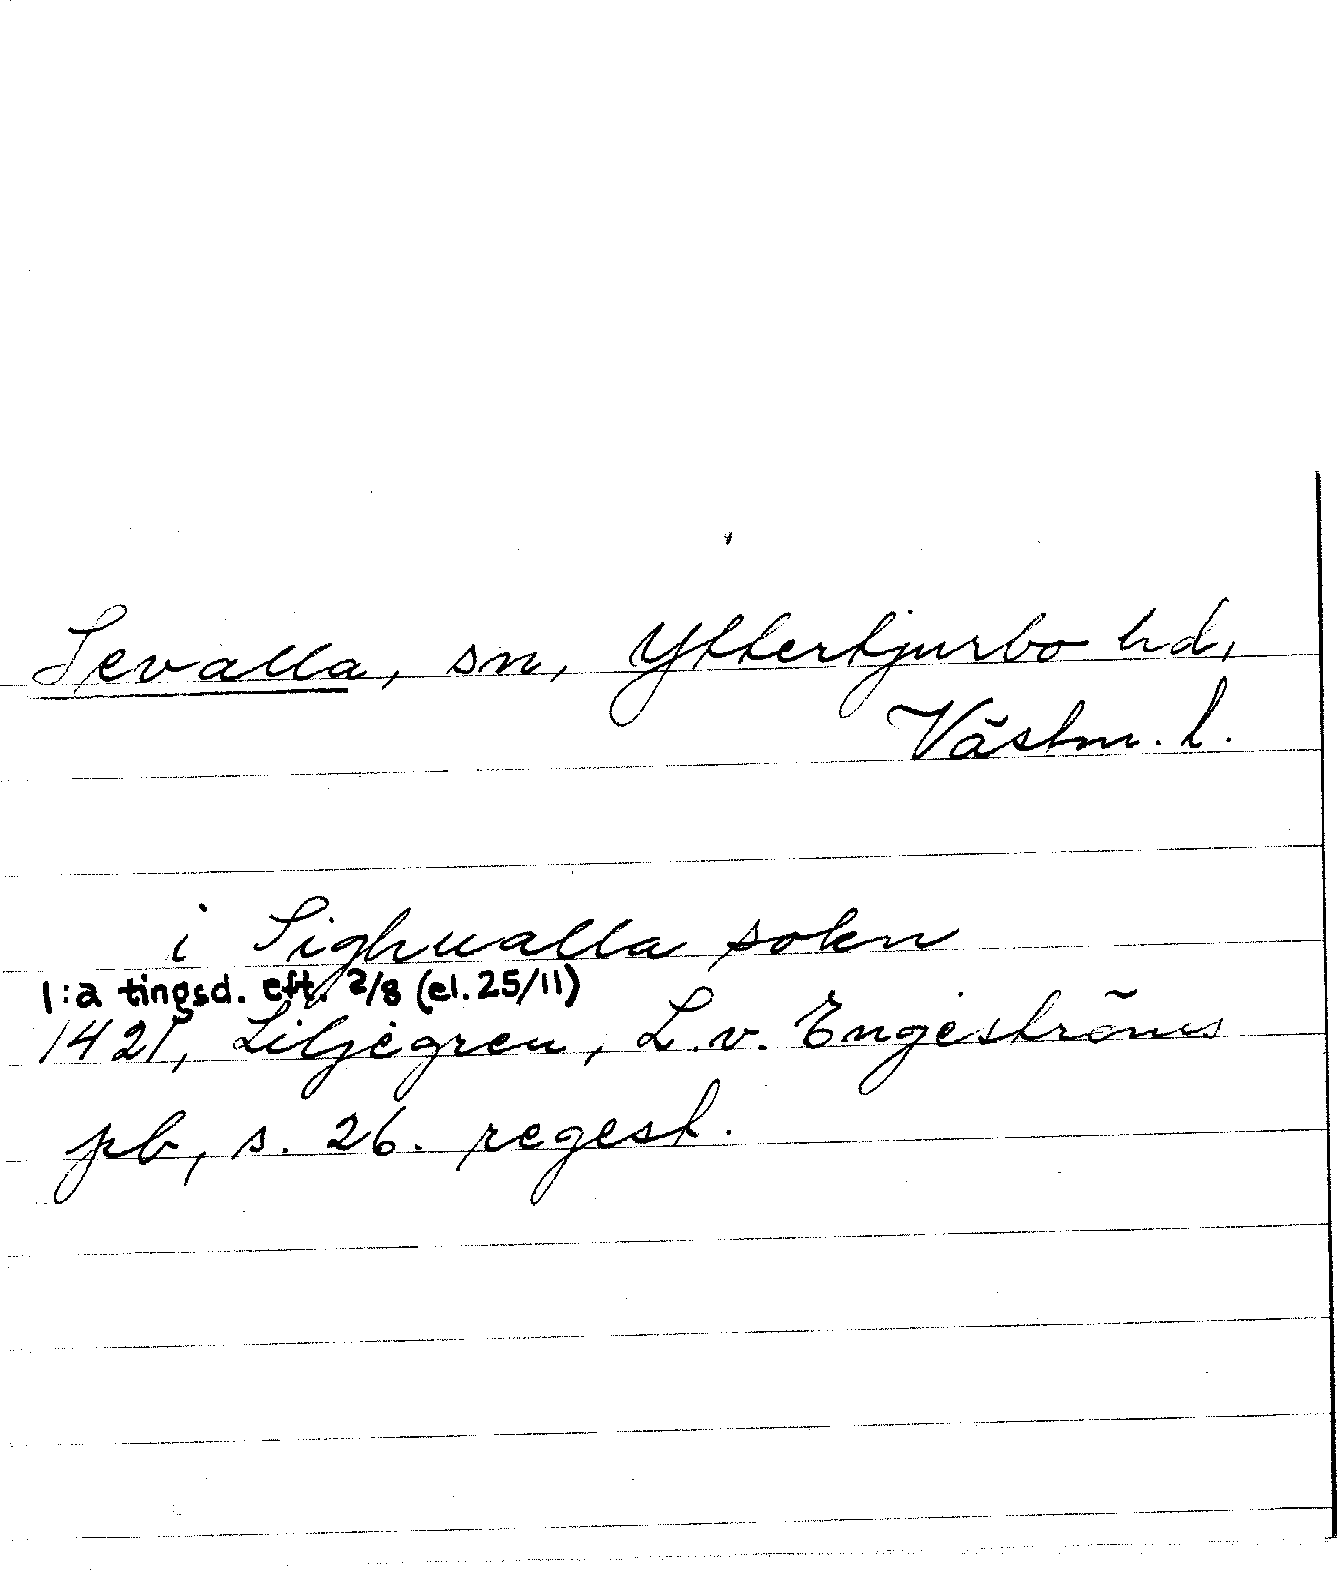 Sevalla, sn, Yttertjurbo hd,
Västm. l.
i Sighualla sokn
1:a tingsd. eft. 2/8 (el. 25/11)
1421, Liljegren, L.v. Engeströms
pb, s. 26. regest.